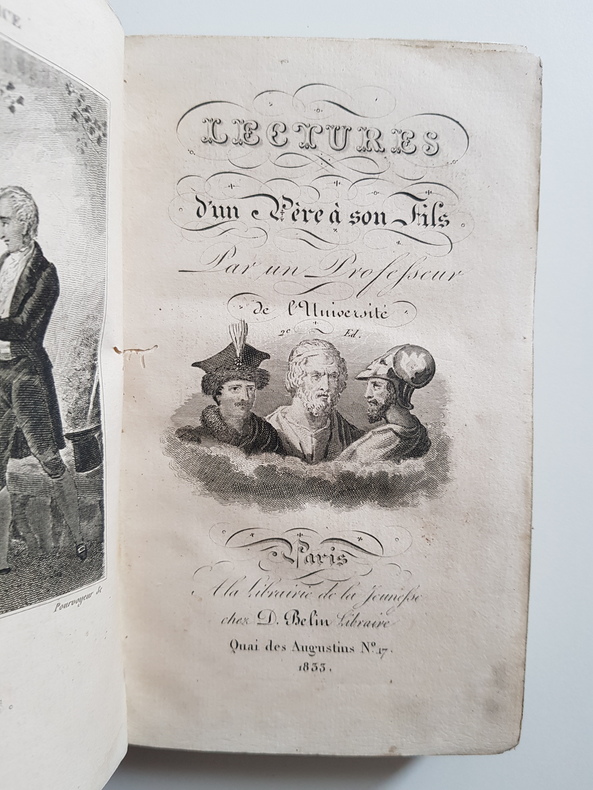 CE
Pourvoyeur Sc
LECTURES
d'un Père à son Fils
Par un Professeur
de l'Université
2e Ed.
Paris
A la Librairie de la Jeunesse
chez D. Belin Libraire
Quai des Augustins No. 17.
1833.